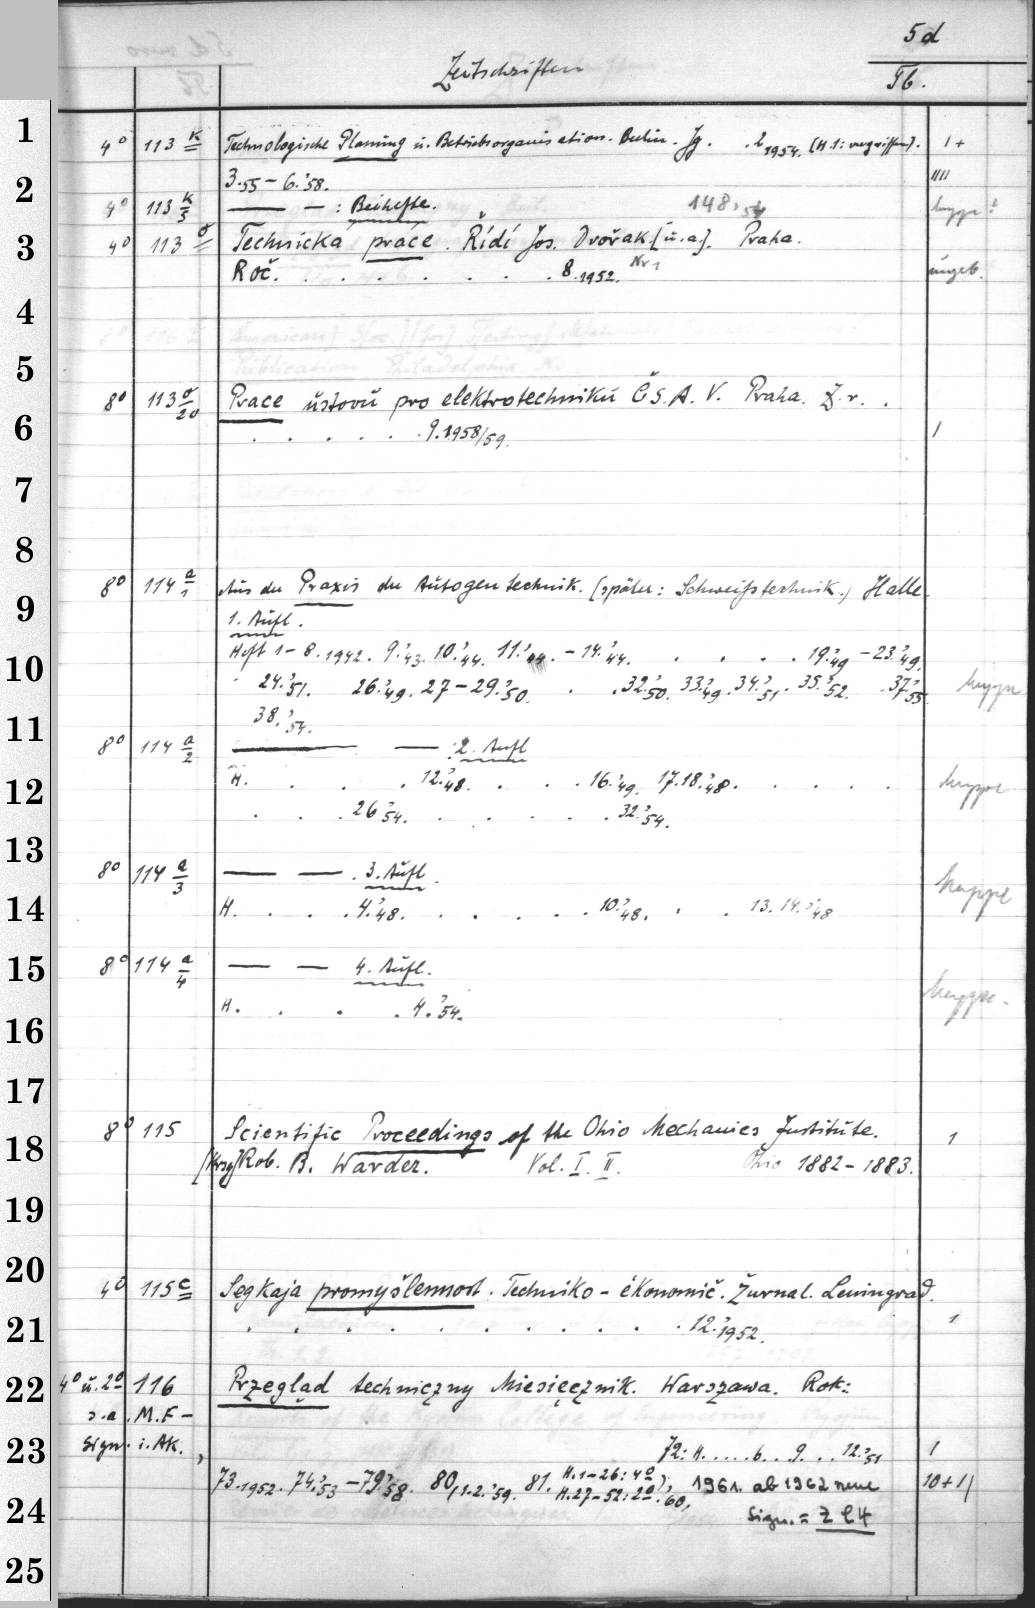 5d
Zeitschriften Tb.
1
4° 113 k Technologische Planung u. Betriebsorganisation. Berlin. Jg. . 2 1954. (H.1: vergriffen). 1+
2
3.'55 – 6.'58. ""
4° 113 k/5 —— — : Beihefte. 148,54
3
4° 113 σ Technická práce. Řídí Jos. Dvořak [u.a]. Praha.
Roč. . . . . . . . 8.1952. Nr 1 ungeb.
4
5
8° 113 σ/20 Prace ústavú pro elektrotechnikú ČS. A. V. Praha. Z.r. .
6
. . . . . . 9.1958/59. 1
7
8
8° 114 a/1 Aus der Praxis der Autogentechnik. (später: Schweißtechnik.) Halle.
9
1. Aufl.
10
Heft 1–8.1942. 9.'43. 10.'44. 11.'44. – 14.'44. . . . . 19.'49 – 23.'49.
24.'51. 26.'49. 27–29.'50. . . 32.'50. 33.'49. 34.'51. 35.'52. . 37.'55. Mappe
11
38.'54.
8° 114 a/2 —— — : 2. Aufl
12
H. . . . . 12.'48. . . . 16.'49. 17.18.'48. . . . . Mappe
. . . 26.'54. . . . . . 32.'54.
13
8° 114 a/3 — — . 3. Aufl.
14
H. . . . 4.'48. . . . . . 10.'48. . . 13. 14.'48 Mappe
15
8° 114 a/4 — — 4. Aufl.
16
H. . . . 4.'54. Mappe.
17
8° 115 Scientific Proceedings of the Ohio Mechanics Institute. 1
18
[Hrsg] Rob. B. Warder. Vol. I. II. Ohio 1882–1883.
19
20
4° 115 c Legkaja promyšlennost. Techniko-ėkonomič. Žurnal. Leningrad.
21
. . . . . . . . . . 12.'1952. 1
22
4° u. 2° 116 Przegląd techniczny Miesięcznik. Warszawa. Rok:
s.a. M.F–
23
Sign. i. AK. , 72: H. . . . . . 6. . 9. . . 12.'51 1
24
73.1952. 74.'53 – 79.'58. 80,1.2.'59. 81. H.1–26: 4° H.27–52: 2° '60, 1961. ab 1962 neue 10+1
Sign. = Z 24
25